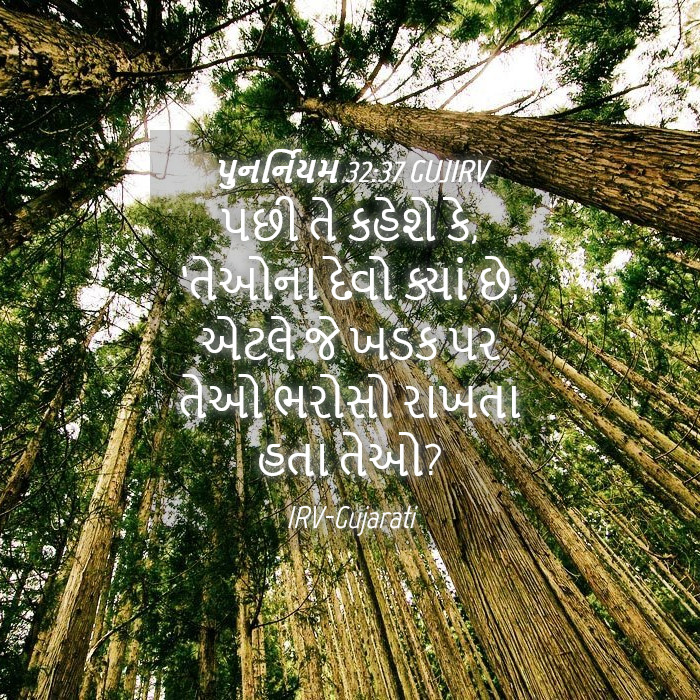 પુનર્નિયમ 32:37 GUJIRV
પછી તે કહેશે કે,
'તેઓના દેવો ક્યાં છે,
એટલે જે ખડક પર
તેઓ ભરોસો રાખતા
હતા તેઓ?
IRV-Gujarati